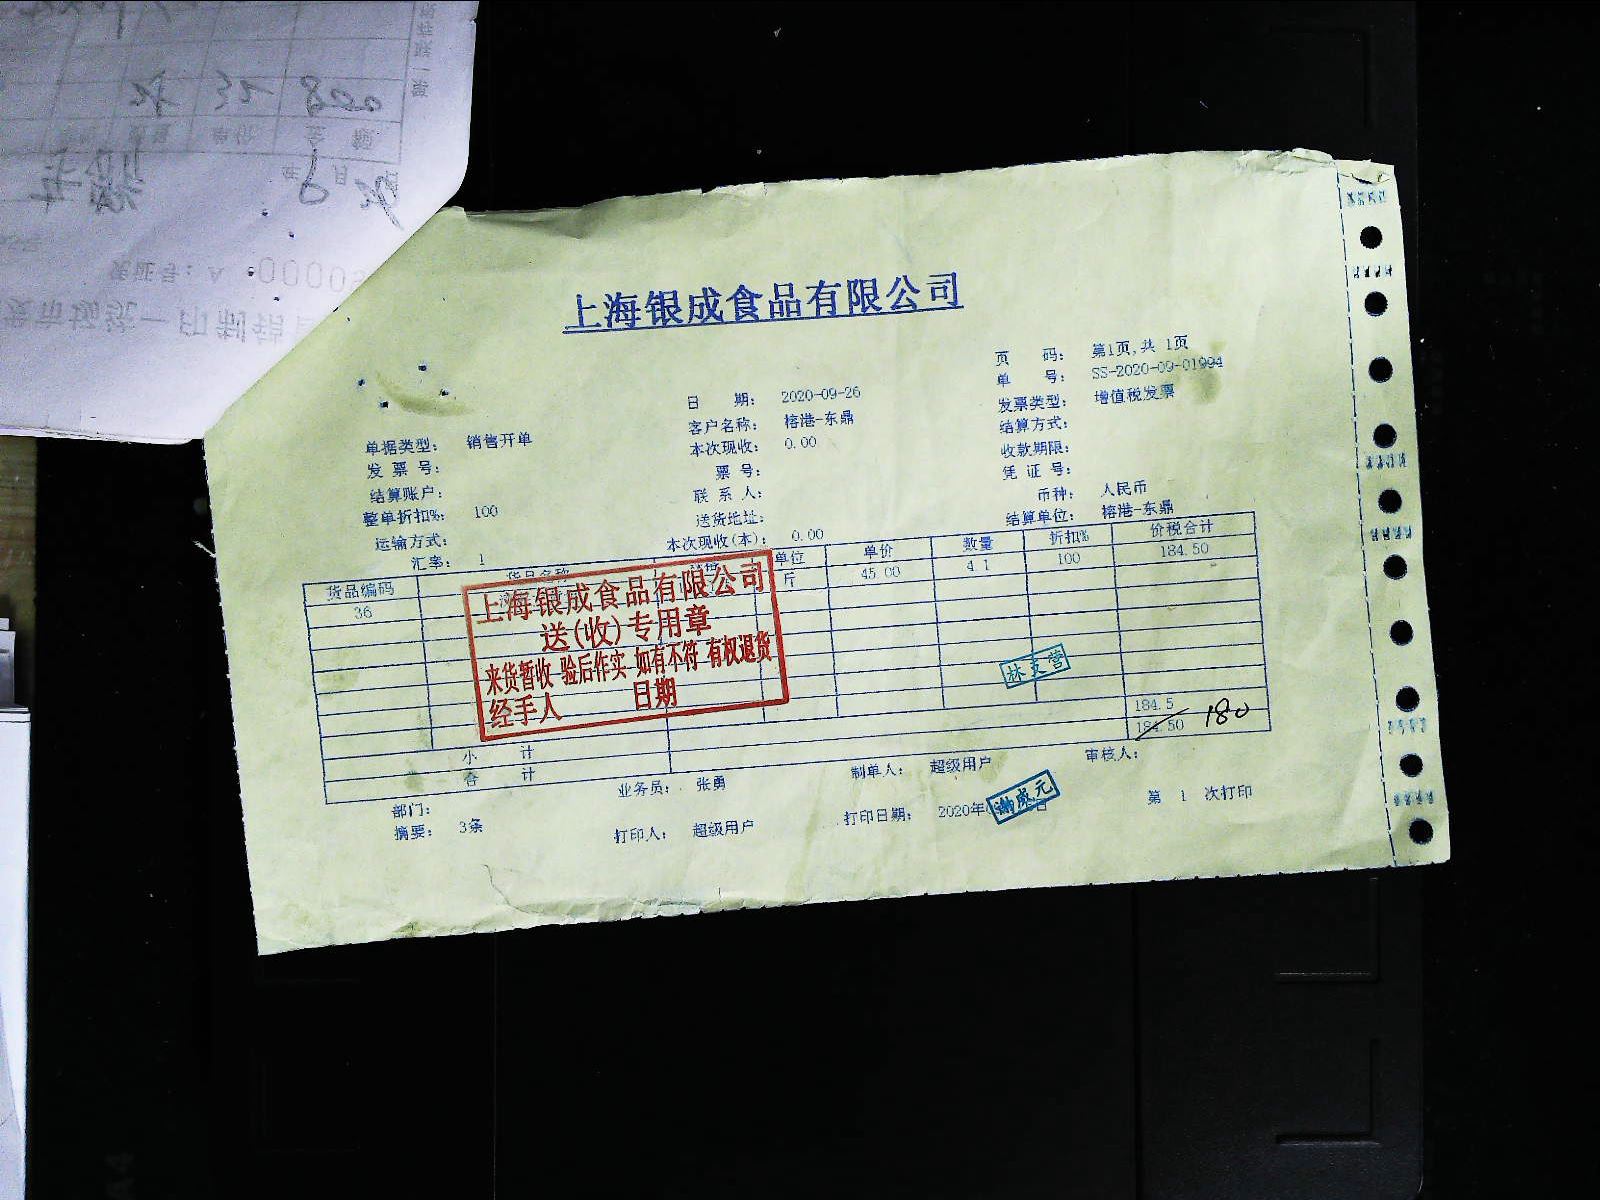 上海银成食品有限公司
页 码： 第1页,共 1页
单 号： SS-2020-09-01994
日 期： 2020-09-26
发票类型： 增值税发票
客户名称： 榕港-东鼎
结算方式：
单据类型： 销售开单
本次现收： 0.00
收款期限：
发 票 号：
票 号：
凭 证 号：
结算账户：
联 系 人：
币种： 人民币
整单折扣%： 100
送货地址：
结算单位： 榕港-东鼎
运输方式：
本次现收(本)： 0.00
汇率： 1
货品编码 货品名称 单位 单价 数量 折扣% 价税合计
36 斤 45.00 4.1 100 184.50
上海银成食品有限公司
送(收)专用章
来货暂收 验后作实 如有不符 有权退货
经手人 日期
林支营
小 计 184.5
合 计 184.50 180
部门：
业务员： 张勇
制单人： 超级用户
审核人：
摘要： 3条
打印人： 超级用户
打印日期： 2020年
第 1 次打印